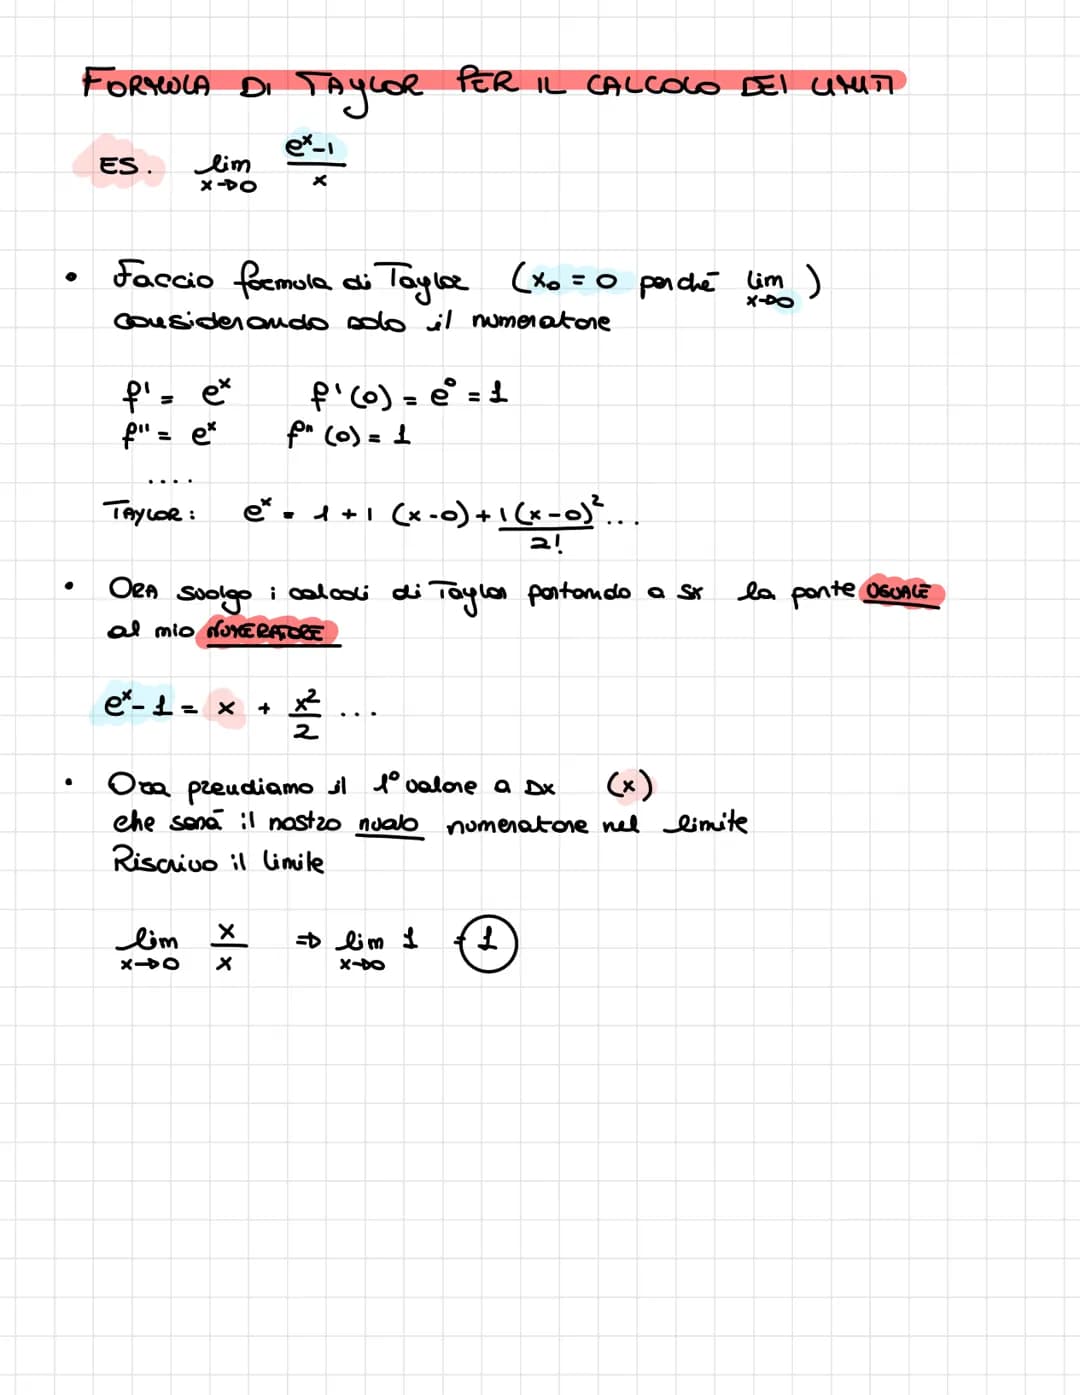 FORMULA DI TAYLOR PER IL CALCOLO DEI LIMITI
ES. lim x→0 (e^x-1)/x
• Faccio formula di Taylor (x₀ = 0 perché lim x→0)
considerando solo il numeratore
f' = e^x f'(0) = e^0 = 1
f'' = e^x f''(0) = 1
....
TAYLOR: e^x = 1 + 1 (x-0) + 1(x-0)²/2! ...
• ORA svolgo i calcoli di Taylor portando a sx la parte UGUALE
al mio NUMERATORE
e^x - 1 = x + x²/2 ...
• Ora prendiamo il 1° valore a Dx (x)
che sarà il nostro nuovo numeratore nel limite
Riscrivo il limite
lim x→0 x/x ⇒ lim x→0 1 = 1